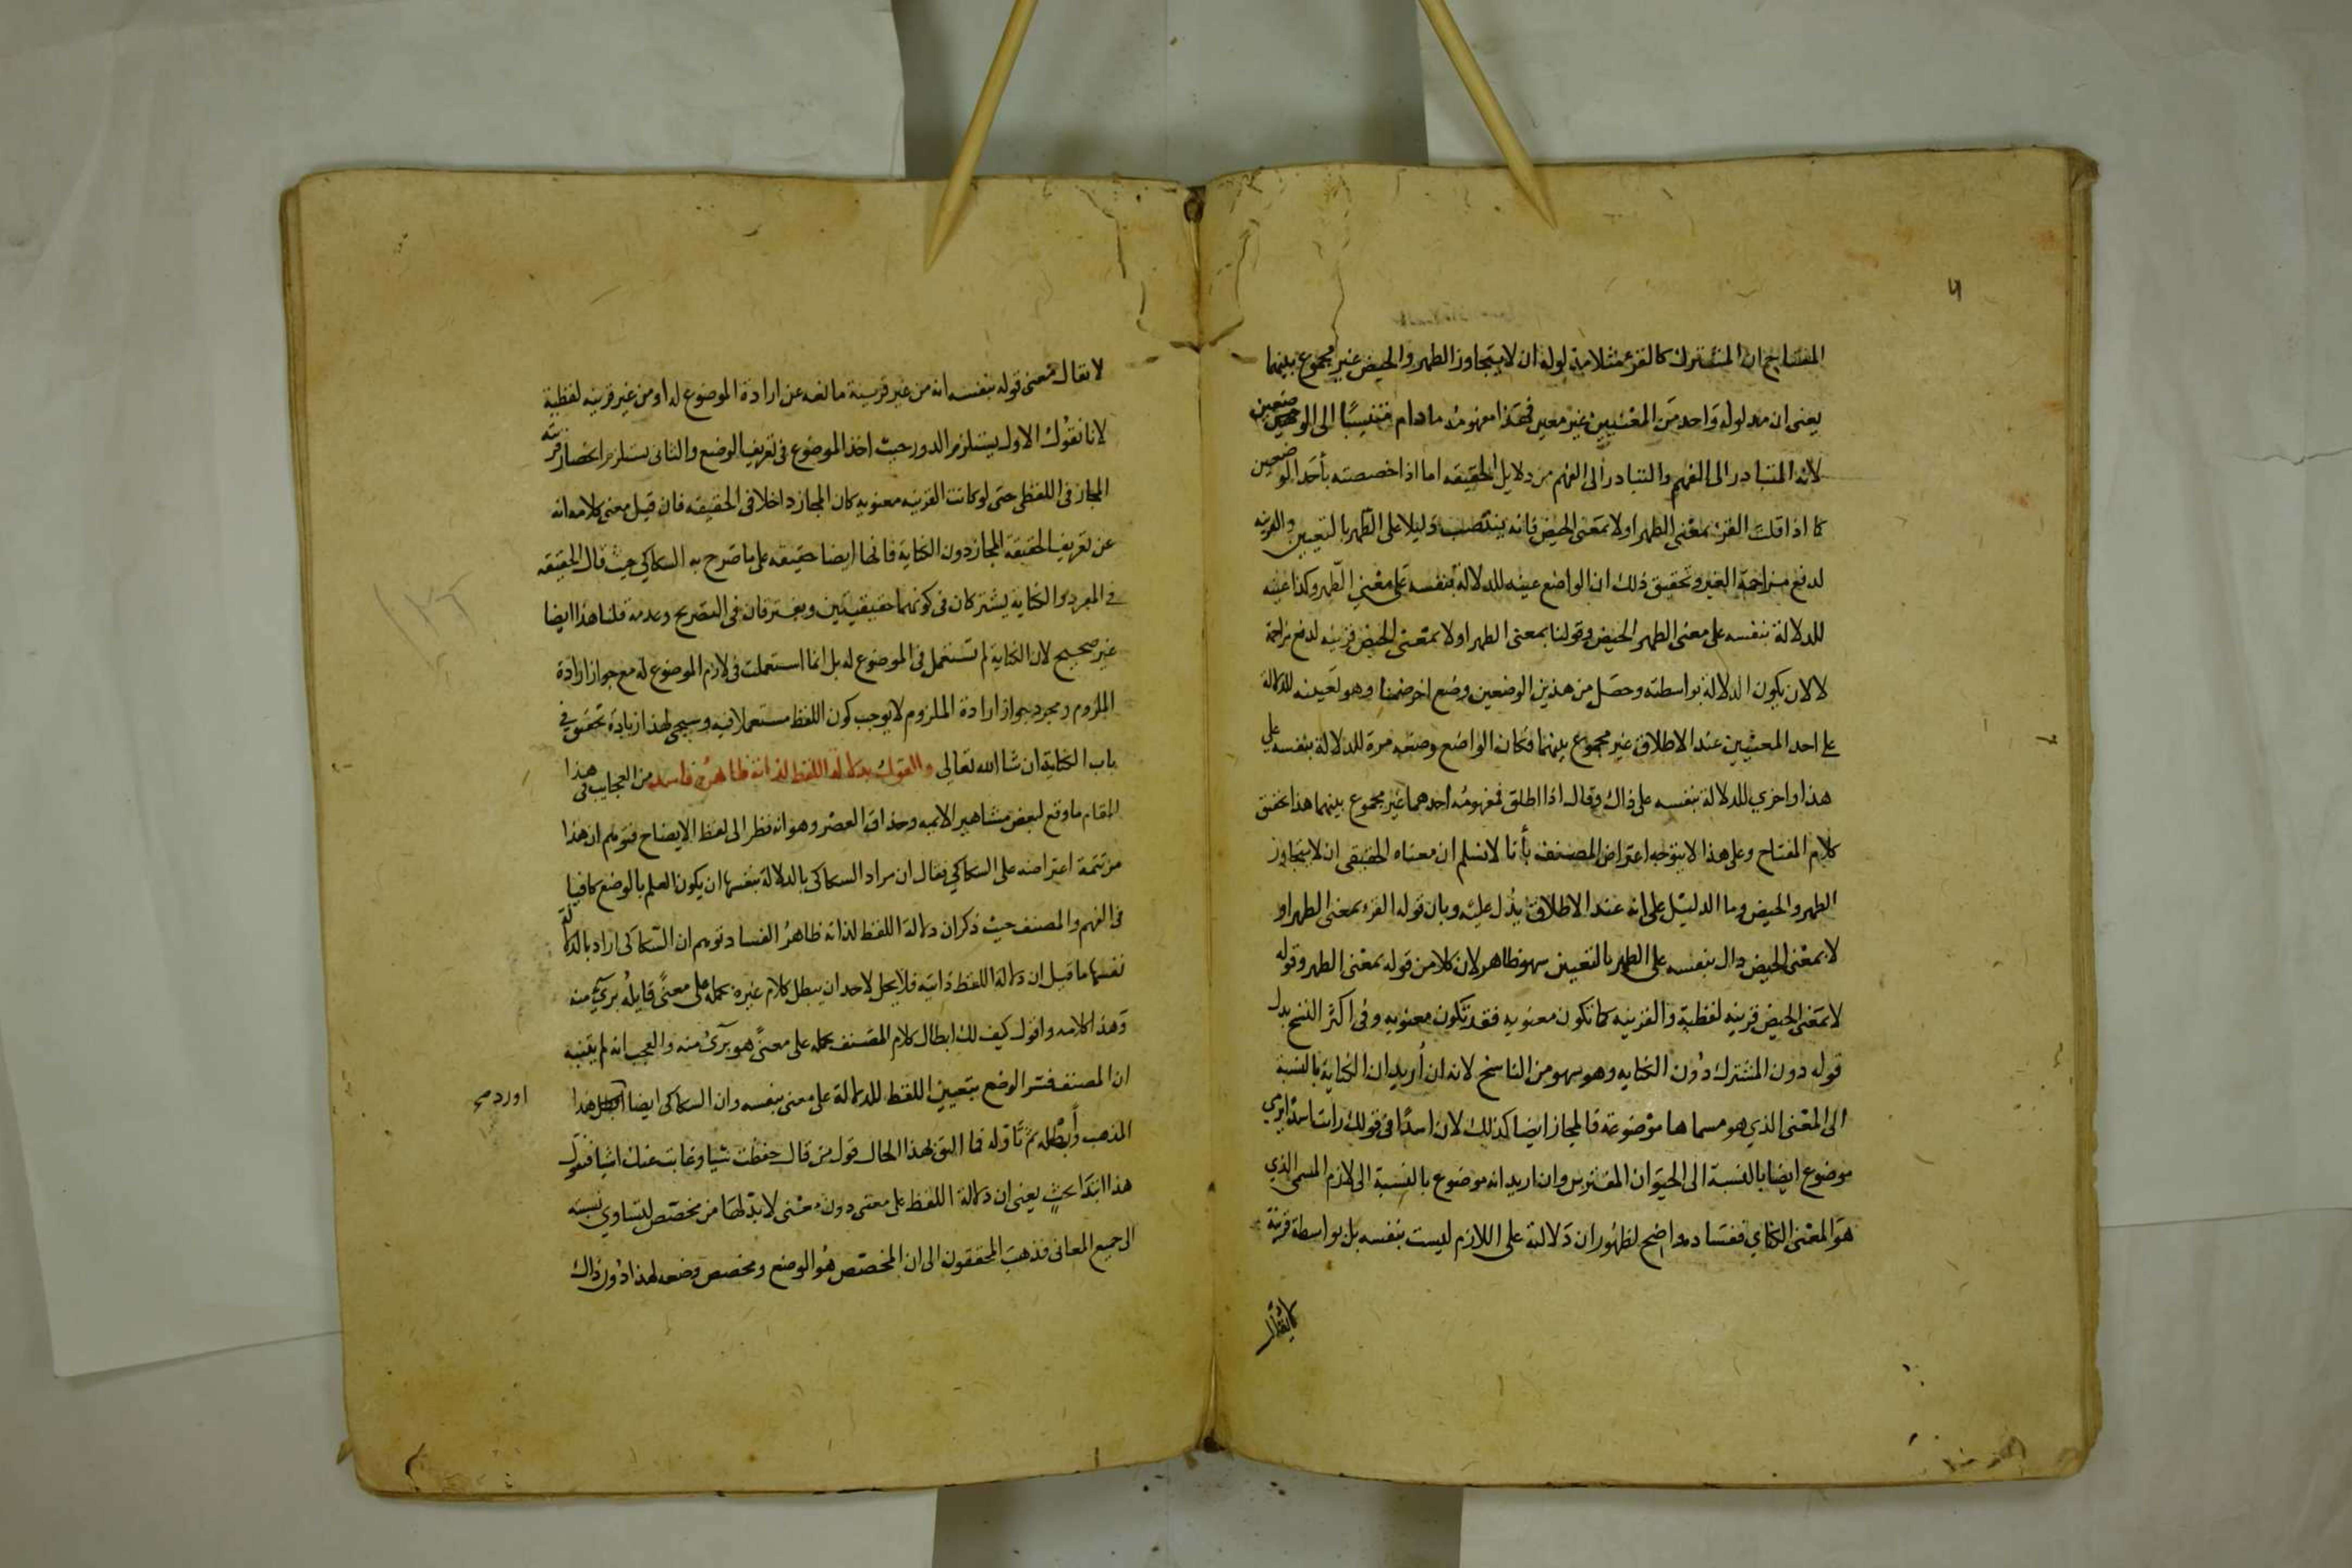 المفتاح ان المشترك كالقرء مثلا مدلوله ان لا يتجاوز الطهر والحيض غير مجموع بينهما
يعنى ان مدلوله واحد من المعنيين غير معين فهذا مفهومه مادام منتسبًا الى الوضعين
لانه المتبادر الى الفهم والتبادر الى الفهم من دلايل الحقيقه اما اذا خصصته بأحد الوضعين
كما اذا قلت القرء بمعنى الطهر او لا بمعنى الحيض فانه ينتصب دليلا على الطهر بالتعيين والقرينه
لدفع مزاحمة الغير وتحقيق ذلك ان الواضع عينه للدلالة بنفسه على معنى الطهر وكذا عينه
للدلالة بنفسه على معنى الطهر الحيض وقولنا بمعنى الطهر او لا بمعنى الحيض قرينه لدفع مزاحمة
لا لان يكون الدلالة بواسطته وحصل من هذين الوضعين وضع اخر ضمنا وهو تعيينه للدلالة
على احد المعنيين عند الاطلاق غير مجموع بينهما فكان الواضع وضعه مرة للدلالة بنفسه على
هذا واخري للدلالة بنفسه على ذاك وقال اذا اطلق فمفهومه احدهما غير مجموع بينهما هذا تحقيق
كلام المفتاح وعلى هذا لا يتوجه اعتراض المصنف بأنا لا نسلم ان معناه الحقيقى ان لا يتجاوز
الطهر والحيض وما الدليل على انه عند الاطلاق يدل عليه وبان قوله القرء بمعنى الطهر او
لا بمعنى الحيض دال بنفسه على الطهر بالتعيين سهو ظاهر لان كلا من قوله بمعنى الطهر وقوله
لا بمعنى الحيض قرينه لفظية والقرينه كما تكون معنويه فقد تكون معنويه وفى اكثر النسخ بدل
قوله دون المشترك دون الكنايه وهو سهو من الناسخ لانه ان أريد ان الكناية بالنسبة
الى المعنى الذي هو مسماها موضوعة فالمجاز ايضا كذلك لان اسدًا فى قولك رايت اسدا يرمي
موضوع ايضا بالنسبة الى الحيوان المفترس وان اريد انه موضوع بالنسبة الى لازم المسمى الذي
هو المعنى الكنايي ففساده واضح لظهور ان دلالته على اللازم ليست بنفسه بل بواسطة قرينة
لا يقال
لا يقال معنى قوله بنفسه انه من غير قرينة مانعه عن ارادة الموضوع له او من غير قرينه لفظية
لانا نقول الاول يستلزم الدور حيث اخذ الموضوع فى تعريف الوضع والثانى يستلزم انحصار قرينة
المجاز فى اللفظى حتى لو كانت القرينه معنويه كان المجاز داخلا فى الحقيقه فان قيل معنى كلامه انه
عن تعريف الحقيقة المجاز دون الكناية فانها ايضا حقيقه على ما صرح به السكاكي حيث قال الحقيقه
فى المفرد والكنايه يشتركان فى كونهما حقيقيتين ويفترقان فى التصريح وعدمه قلنا هذا ايضا
غير صحيح لان الكناية لم تستعمل فى الموضوع له بل انما استعملت فى لازم الموضوع له مع جواز ارادة
الملزوم ومجرد جواز ارادة الملزوم لا يوجب كون اللفظ مستعملا فيه وسيجى لهذا زيادة تحقيق في
باب الكناية ان شا الله تعالى والقول بدلالة اللفظ لذاته ظاهره فاسد من العجايب فى هذا
المقام ما وقع لبعض مشاهير الايمه وحذاق العصر وهو انه نظر الى لفظ الايضاح فتوهم ان هذا
من تتمة اعتراضه على السكاكي فقال ان مراد السكاكى بالدلالة بنفسها ان يكون العلم بالوضع كافيا
فى الفهم والمصنف حيث ذكر ان دلالة اللفظ لذاته ظاهر الفساد توهم ان السكاكى اراد بالدلالة
نفسها ما قيل ان دلالة اللفظ ذاتيه فلا يحل لاحد ان يبطل كلام غيره بحمله على معنًى قايله بريء منه
وهذا كلامه واقول كيف لك ابطال كلام المصنف بحمله على معنًى هو بريٌ منه والعجب انه لم يتنبه
ان المصنف فسر الوضع بتعيين اللفظ للدلالة على معنى بنفسه وان السكاكى ايضا هذا
اورد صح
المذهب وأبطله ثم تاوله فما اليق بهذا الحال قول من قال حفظت شيا وغابت عنك اشيا فنقول
هذا ابتدا بحث يعنى ان دلالة اللفظ على معنى دون معنى لا بد لها من مخصص لتساوي نسبته
الى جميع المعانى فذهب المحققون الى ان المخصص هو الوضع ومخصص وضعه لهذا دون ذاك